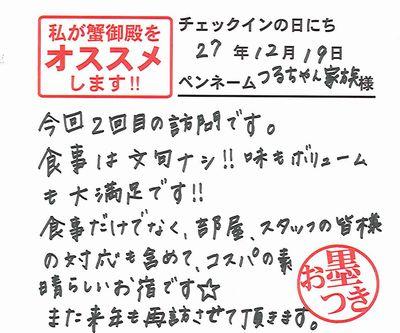 私が蟹御殿を
オススメ
します!!
チェックインの日にち
27年12月19日
ペンネームつるちゃん家族様
今回2回目の訪問です。
食事は文句ナシ!!味もボリューム
も大満足です!!
食事だけでなく、部屋、スタッフの皆様
の対応も含めて、コスパの素
晴らしいお宿です☆
また来年も再訪させて頂きます。
お墨つき